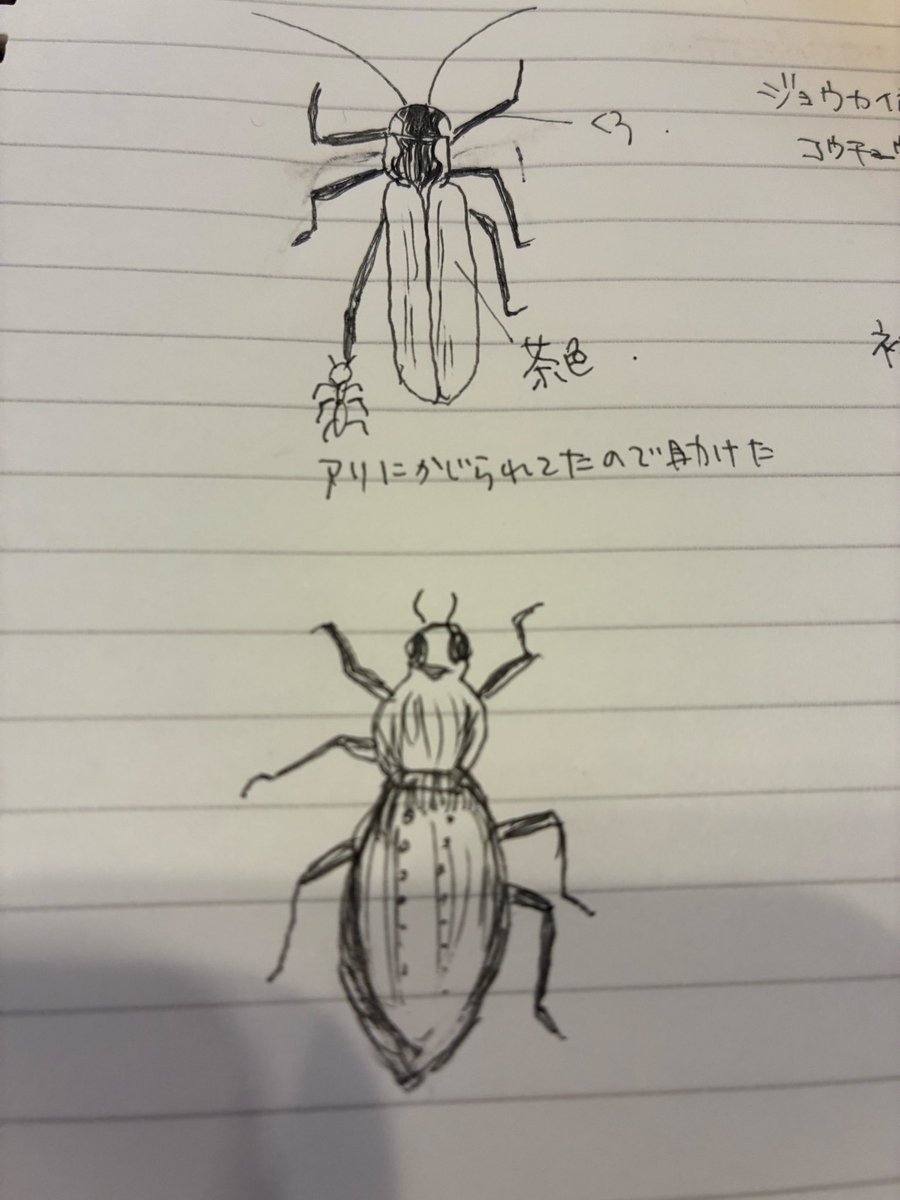 ジョウカイ
コウチュウ
くろ.
茶色.
アリにかじられてたので助けた